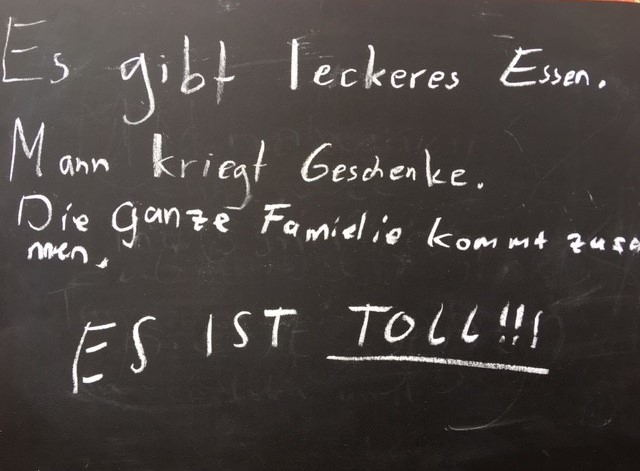 Es gibt leckeres Essen.
Mann kriegt Geschenke.
Die ganze Familie kommt zusa
mmen.
ES IST TOLL!!!